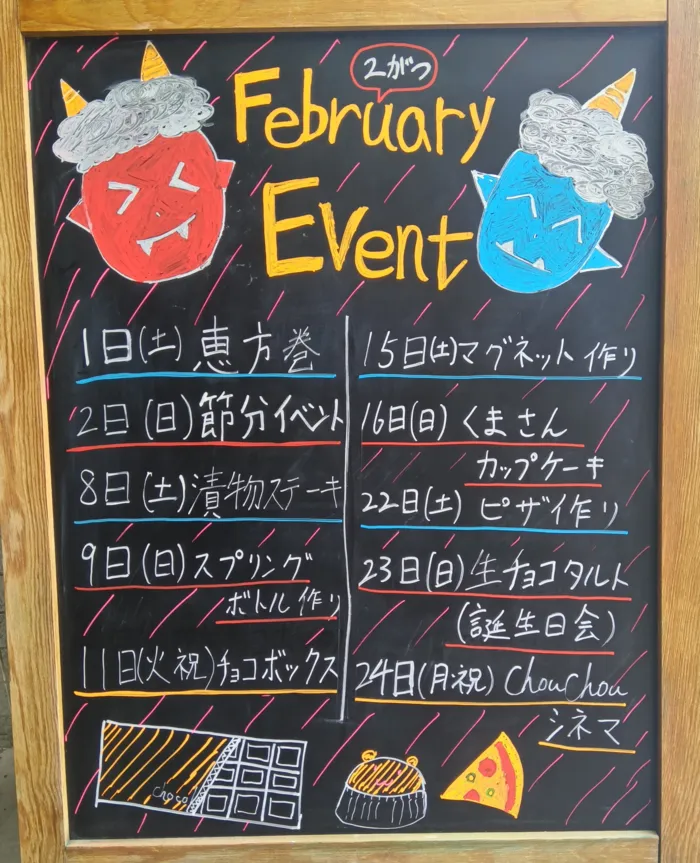 2がつ
February
Event
1日(土)恵方巻
2日(日)節分イベント
8日(土)漬物ステーキ
9日(日)スプリング
ボトル作り
11日(火祝)チョコボックス
15日(土)マグネット作り
16日(日)くまさん
カップケーキ
22日(土)ピザ作り
23日(日)生チョコタルト
(誕生日会)
24日(月祝)ChouChou
シネマ
choco